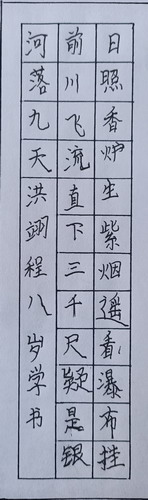 日照香炉生紫烟遥看瀑布挂
前川飞流直下三千尺疑是银
河落九天洪翊程八岁学书